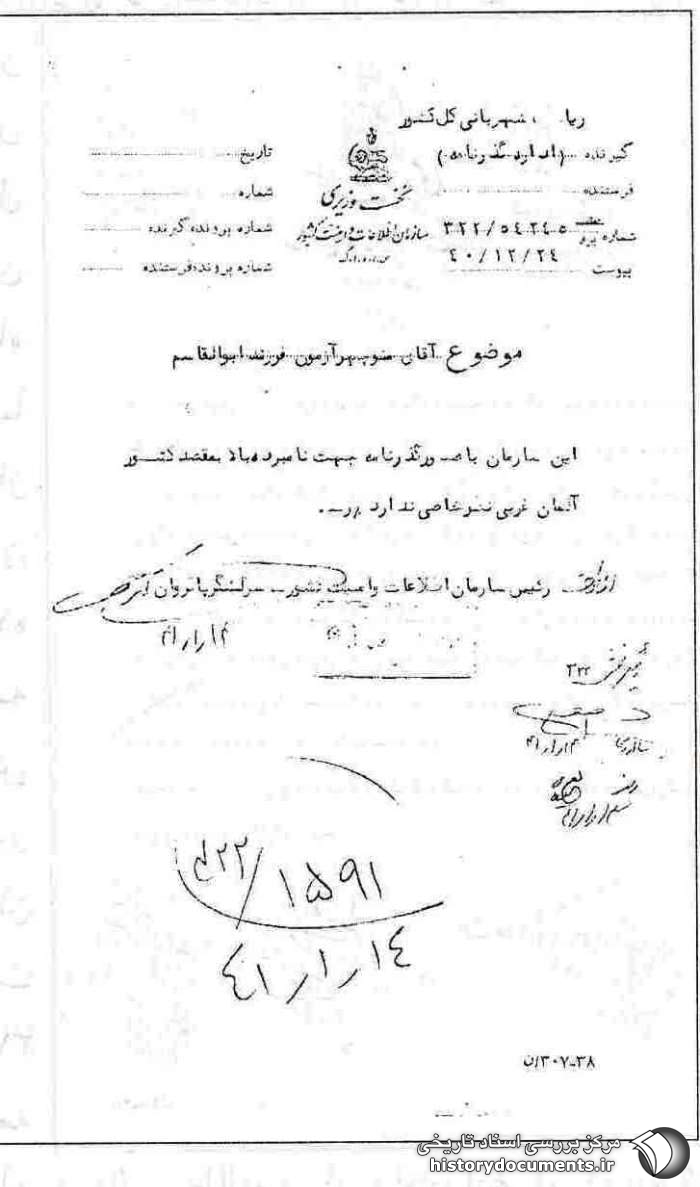 ریا شهربانی کل کشور
گیرنده (اداره گذرنامه) تاریخ
فرستنده شماره
نخست وزیری
شماره ۳۲۲/۵۴۲۴۵ سازمان اطلاعات و امنیت کشور شماره پرونده گیرنده
پیوست ۴۰/۱۲/۲۴ شماره پرونده فرستنده
موضوع آقای منوچهر آزمون فرزند ابوالقاسم
این سازمان با صدور گذرنامه جهت نامبرده بالا بمقصد کشور
آلمان غربی نظر خاصی ندارد
رئیس سازمان اطلاعات و امنیت کشور سرلشگر پاکروان
۳۲۲
۱۵۹۱/۲۲
۴۱/۱/۱۴
۳۰۷-۳۸/ن
مرکز بررسی اسناد تاریخی
historydocuments.ir